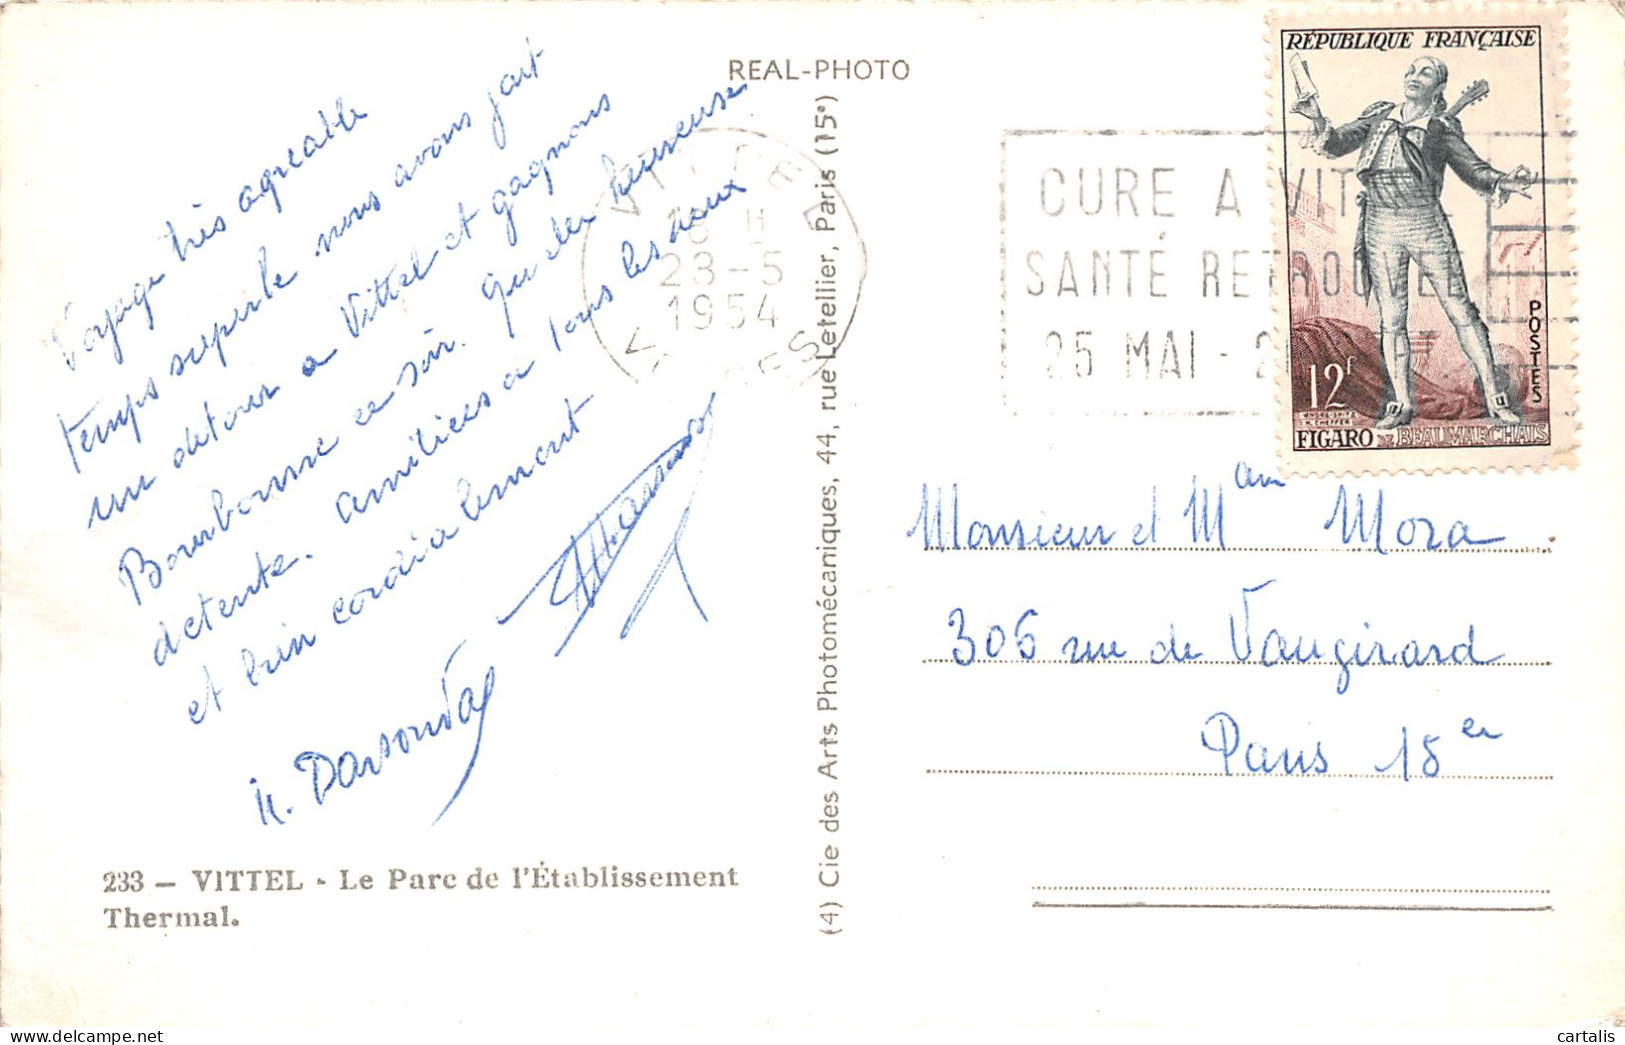 REAL-PHOTO
Voyage très agréable
temps superbe nous avons fait
un detour a Vittel et gagnons
Bourbonne ce soir. quelle heureuse
detente. amitiées a tous les deux
et bien cordialement
233 — VITTEL - Le Parc de l'Établissement
Thermal.
(4) Cie des Arts Photomécaniques, 44, rue Letellier, Paris (15e)
VITTEL
18 H
28-5
1954
VOSGES
CURE A VITTEL
SANTÉ RETROUVÉE
25 MAI - 2
RÉPUBLIQUE FRANÇAISE
POSTES
12F
ANDRÉ-SPITZ
H. CHEFFER
FIGARO DE BEAUMARCHAIS
Monsieur et Mame Mora
306 rue de Vaugirard
Paris 15er
cartalis